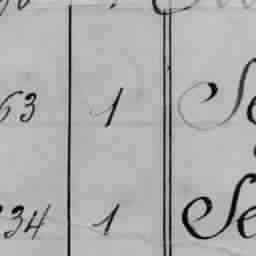 63 1 Se
234 1 Se